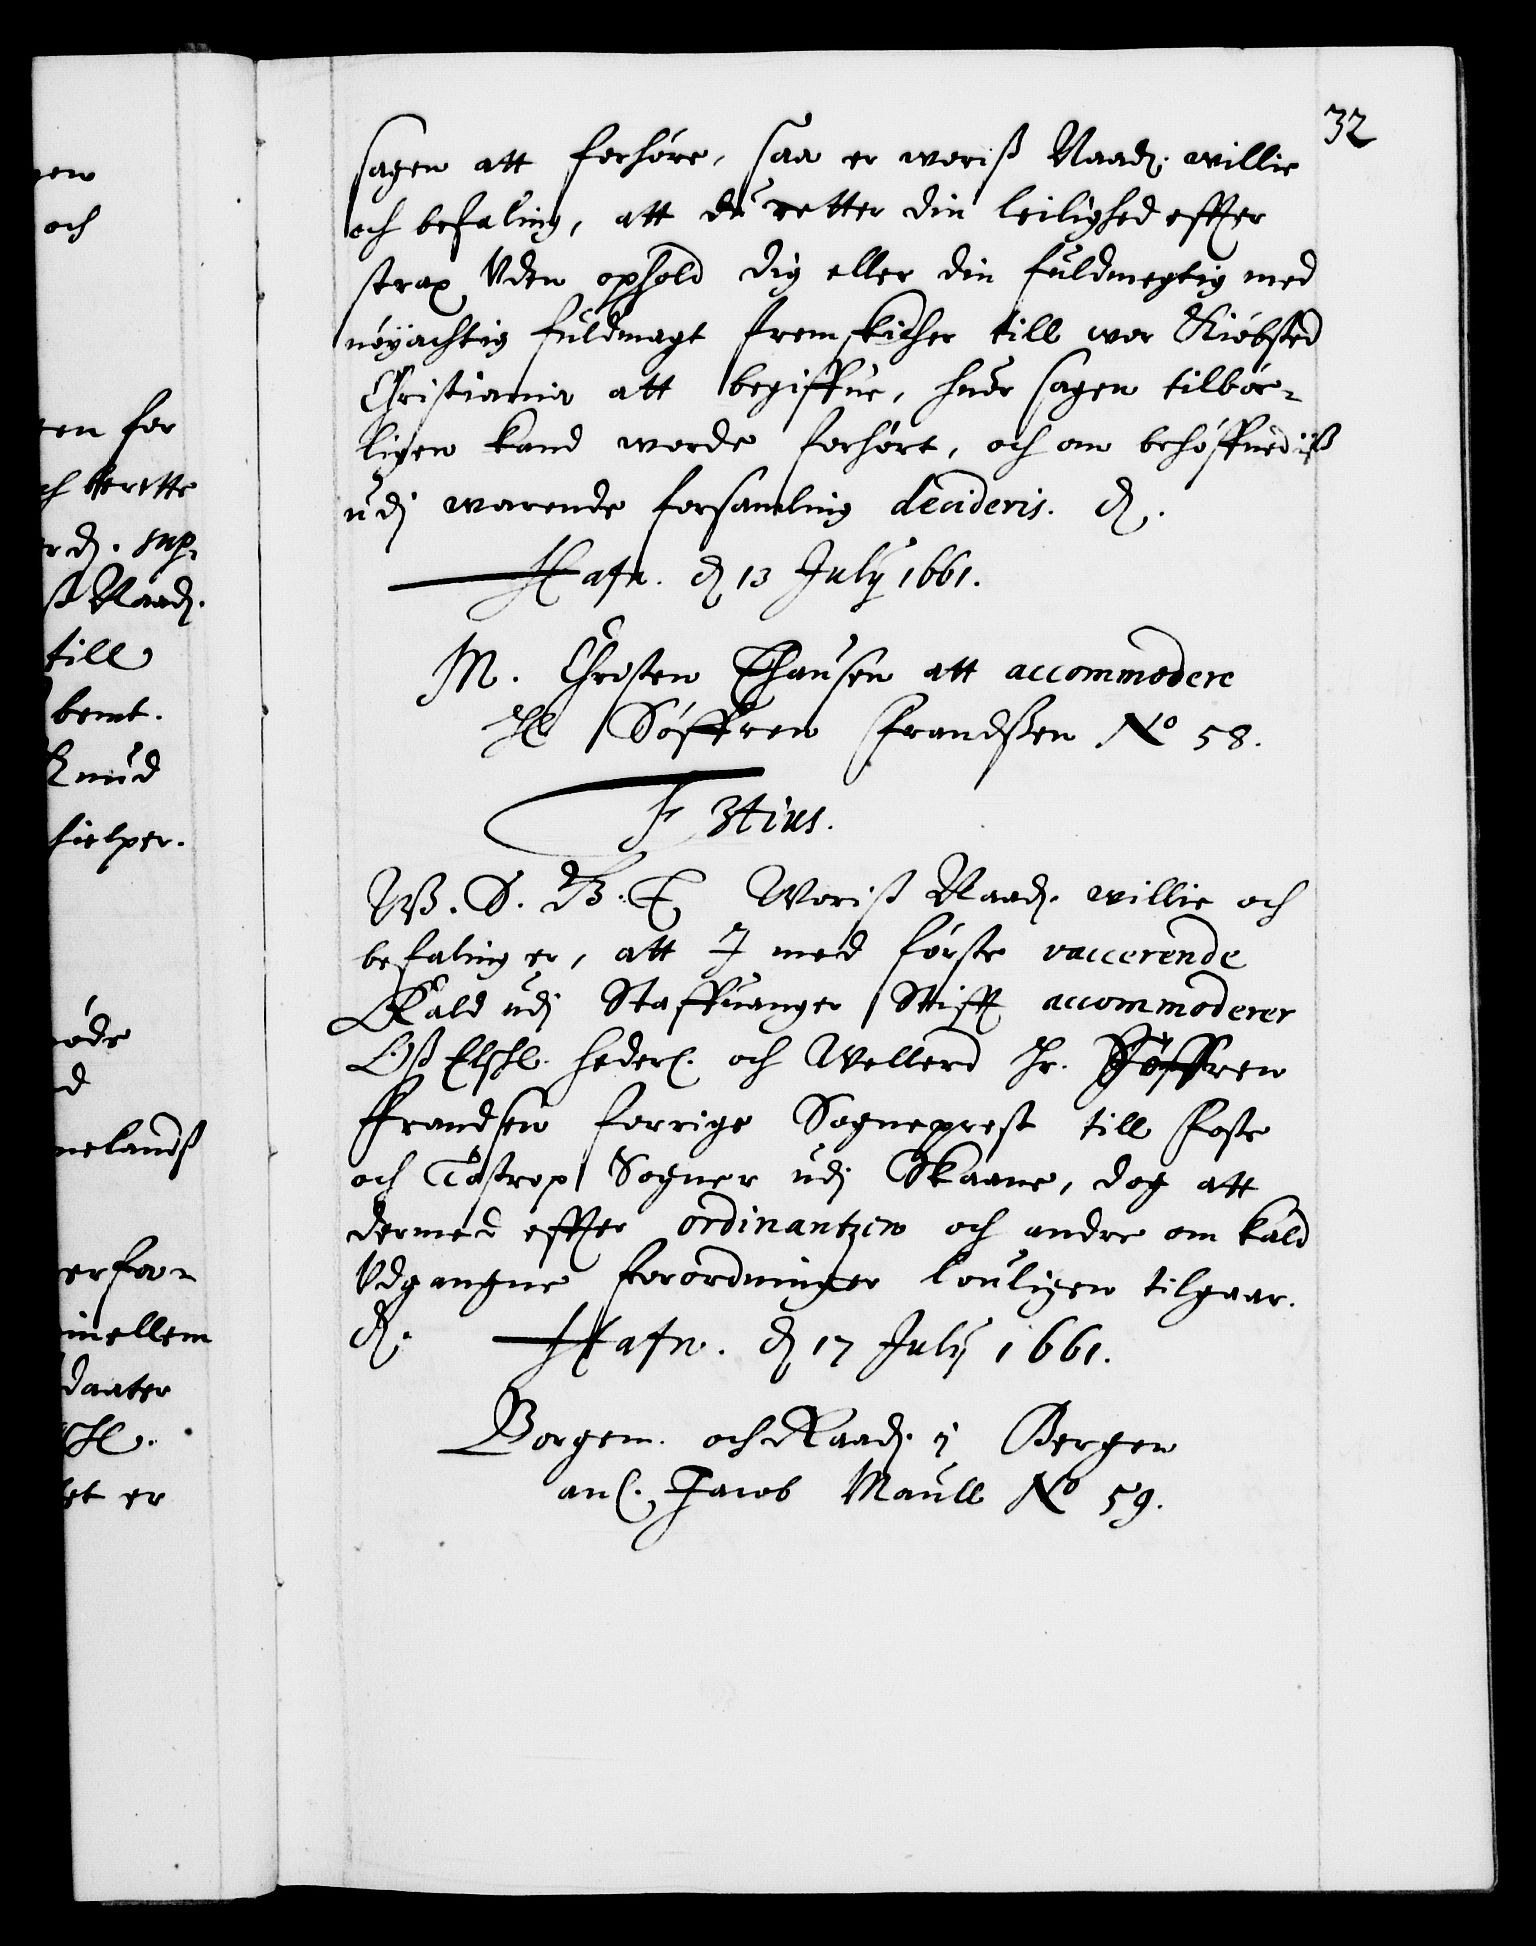 32
sagen att forhöre, saa er woriß Naad. willie
och befaling, att du retter din leilighed effter
strax Uden ophold dig eller din fuldmegtig med
nöyachtig fuldmagt fremskicher till wor Kiöbsted
Christiania att begiffue, huor sagen tilbör-
ligen kand worde forhört, och om behöffuediß
udj warende forsamling decideris. d.
Hafn. d 13 July 1661.
M. Christen Thausen att accommodere
Hr Söffren Frandßen No 58.
F 3tius.
W. S. G. T. Woriß Naad. willie och
befaling er, att I med förste vaccerende
Kald udj Staffuanger Stifft accommoderer
Oß Elschl. hederl. och Wellerd Hr. Söffren
Frandsen forrige Sogneprest till Foste
och Tostrop Sogner udj Skaane, dog att
dermed effter ordinantzien och andre om kald
Udgangne forordninger louligen tilgaar.
d. Hafn. d 17 July 1661.
Borgem. och Raad. i Bergen
anl. Jacob Maull No 59.
och
en for
ch berette
sup-
ß Naad.
till
bemt.
Knud
hielper.
öde
d
nelandß
erfar-
imellem
daater
et er